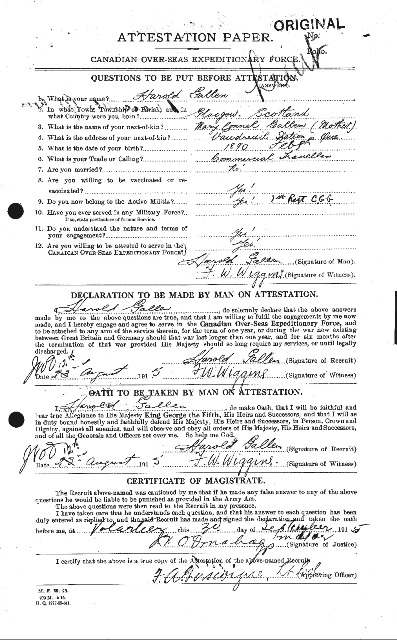 ORIGINAL
ATTESTATION PAPER.
No.
Folio.
CANADIAN OVER-SEAS EXPEDITIONARY FORCE.
QUESTIONS TO BE PUT BEFORE ATTESTATION.
(ANSWERS)
1. What is your name? Harold Gallen
2. In what Town, Township or Parish, and in
what Country were you born? Glasgow, Scotland
3. What is the name of your next-of-kin? (Mother)
4. What is the address of your next-of-kin? Vaudreuil
5. What is the date of your birth? 1890 Feb 9
6. What is your Trade or Calling? Commercial Traveller
7. Are you married? No.
8. Are you willing to be vaccinated or re-
vaccinated? Yes!
9. Do you now belong to the Active Militia? Yes! 1st Regt C.G.G.
10. Have you ever served in any Military Force?
If so, state particulars of former Service.
11. Do you understand the nature and terms of
your engagement? Yes!
12. Are you willing to be attested to serve in the
CANADIAN OVER-SEAS EXPEDITIONARY FORCE? Yes.
Harold Gallen (Signature of Man).
F. W. Wiggins (Signature of Witness).
DECLARATION TO BE MADE BY MAN ON ATTESTATION.
I, Harold Gallen, do solemnly declare that the above answers
made by me to the above questions are true, and that I am willing to fulfil the engagements by me now
made, and I hereby engage and agree to serve in the Canadian Over-Seas Expeditionary Force, and
to be attached to any arm of the service therein, for the term of one year, or during the war now existing
between Great Britain and Germany should that war last longer than one year, and for six months after
the termination of that war provided His Majesty should so long require my services, or until legally
discharged.
Harold Gallen (Signature of Recruit)
Date August 1915 F. W. Wiggins (Signature of Witness)
OATH TO BE TAKEN BY MAN ON ATTESTATION.
I, Harold Gallen, do make Oath, that I will be faithful and
bear true Allegiance to His Majesty King George the Fifth, His Heirs and Successors, and that I will as
in duty bound honestly and faithfully defend His Majesty, His Heirs and Successors, in Person, Crown and
Dignity, against all enemies, and will observe and obey all orders of His Majesty, His Heirs and Successors,
and of all the Generals and Officers set over me. So help me God.
Harold Gallen (Signature of Recruit)
Date August 1915 F. W. Wiggins (Signature of Witness)
CERTIFICATE OF MAGISTRATE.
The Recruit above-named was cautioned by me that if he made any false answer to any of the above
questions he would be liable to be punished as provided in the Army Act.
The above questions were then read to the Recruit in my presence.
I have taken care that he understands each question, and that his answer to each question has been
duly entered as replied to, and the said Recruit has made and signed the declaration and taken the oath
before me, at this day of September 1915
(Signature of Justice)
I certify that the above is a true copy of the Attestation of the above-named Recruit.
(Approving Officer)